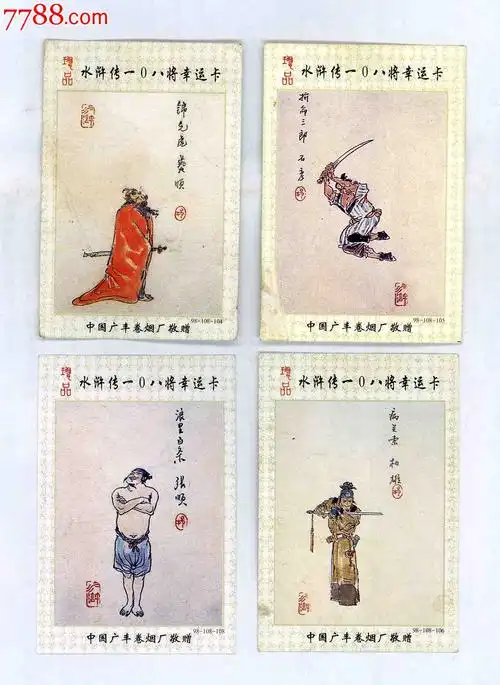 7788.com
珍品
水浒传一0八将幸运卡
锦毛虎 燕顺
98-108-104
中国广丰卷烟厂敬赠
珍品
水浒传一0八将幸运卡
拚命三郎 石秀
98-108-105
中国广丰卷烟厂敬赠
珍品
水浒传一0八将幸运卡
浪里白条 张顺
98-108-108
中国广丰卷烟厂敬赠
珍品
水浒传一0八将幸运卡
病关索 杨雄
98-108-106
中国广丰卷烟厂敬赠